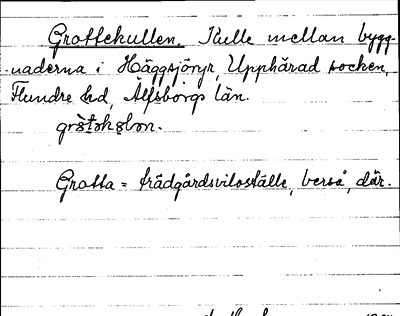 Grottekullen. Kulle mellan bygg-
naderna i Häggsjöryr, Upphärad socken,
Flundre hd, Älfsborgs län.

Grotta = trädgårdsviloställe, berså, där.